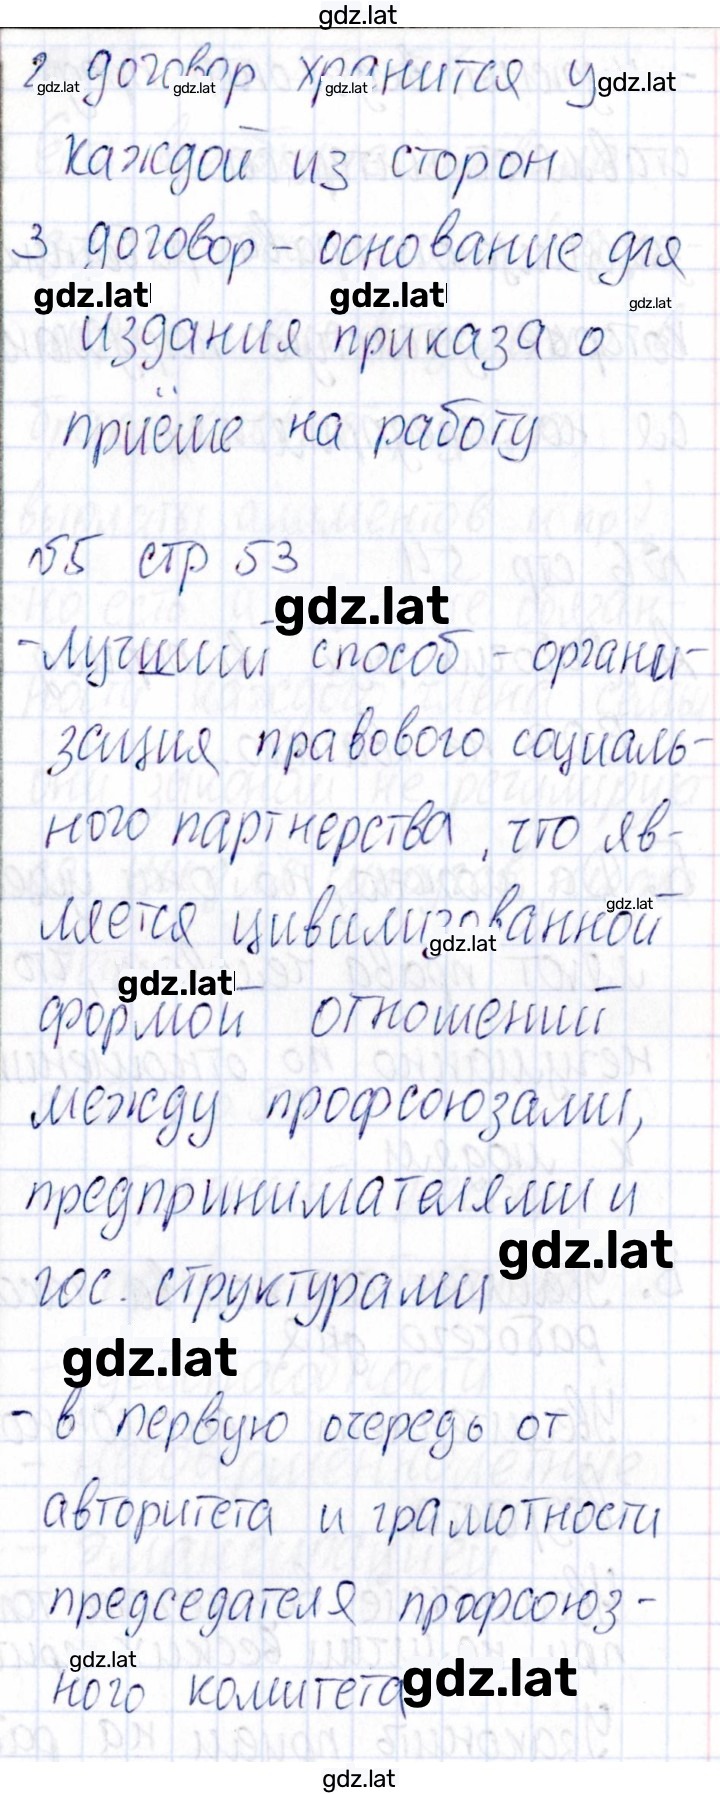 gdz.lat
2 договор хранится у
gdz.lat gdz.lat gdz.lat gdz.lat
каждой из сторон
3 договор - основание для
gdz.lat gdz.lat gdz.lat
издания приказа о
приёме на работу
№5 стр 53
gdz.lat
- лучший способ - органи-
зация правового социаль-
ного партнерства, что яв-
gdz.lat
ляется цивилизованной
gdz.lat
gdz.lat
формой отношений
между профсоюзами,
предпринимателями и
gdz.lat
гос. структурами
gdz.lat
- в первую очередь от
авторитета и грамотности
председателя профсоюз-
gdz.lat
ного комитета gdz.lat
gdz.lat